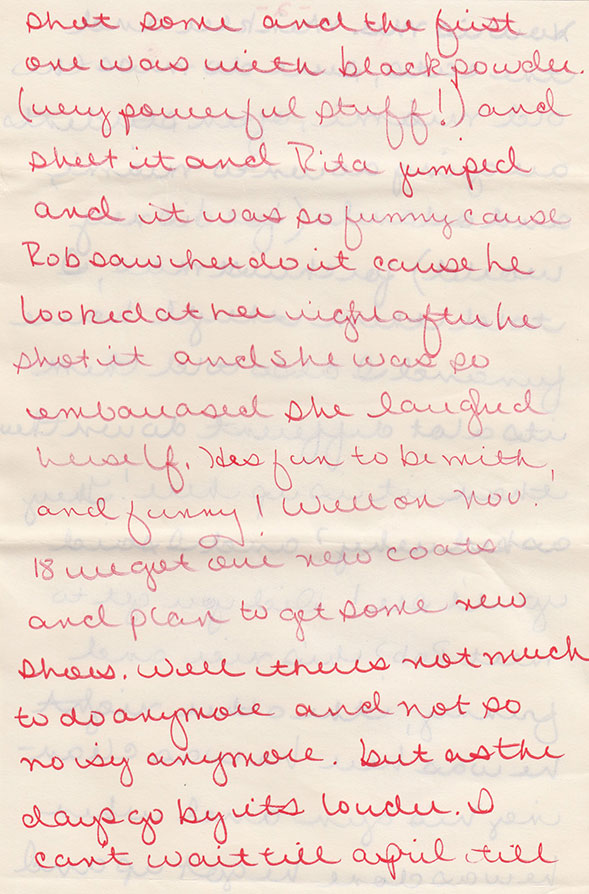 shot some and the first
one was with black powder.
(very powerful stuff!) and
shot it and Rita jumped
and it was so funny cause
Rob saw her do it cause he
looked at her right after he
shot it and she was so
embarrased she laughed
herself. Hes fun to be with,
and funny! Well on Nov.
18 we got our new coats
and plan to get some new
shoes. Well theres not much
to do anymore and not so
noisy anymore. But as the
days go by its louder. I
can't wait till april till